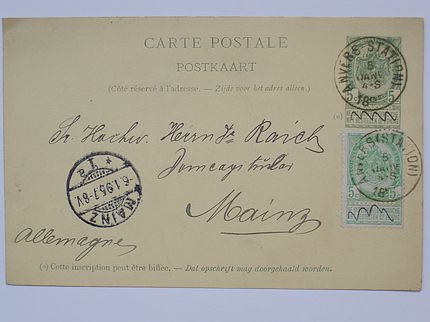 CARTE POSTALE
POSTKAART
(Côté réservé à l'adresse. — Zijde voor het adres alleen.)
ANVERS (STATION)
5
JANV
4-S
18
5 5
(*)
Sr. Hochw. Herrn Dr Raich
Domcapitular
Mainz
Allemagne
MAINZ
6.1.95.7-8V.
* 1a *
ANVERS (STATION)
5
JANV
18
5 5
(*) Cette inscription peut être biffée. — Dat opschrift mag doorgehaald worden.